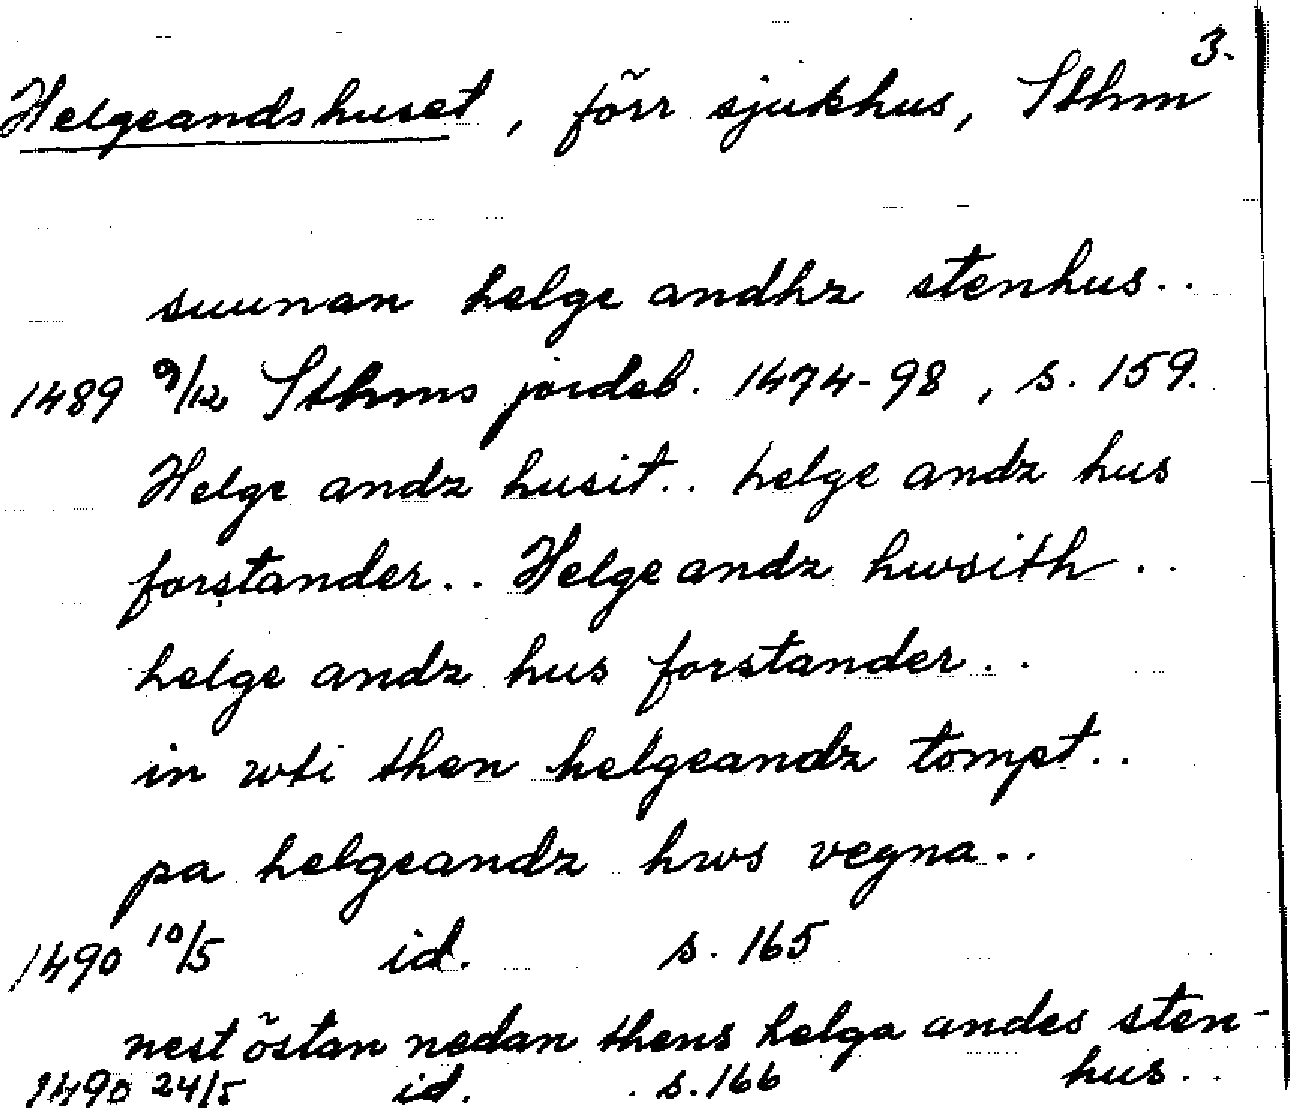 3.
Helgeandshuset, förr sjukhus, Sthm
suunan helge andhz stenhus..
1489 9/12 Sthms jordeb. 1474-98, s. 159.
Helge andz husit.. helge andz hus
forstander.. Helgeandz hwsith..
helge andz hus forstander..
in wti then helgeandz tompt..
pa helgeandz hws vegna..
1490 10/5 id. s. 165
nest östan nedan thens helga andes sten-
hus..
1490 24/5 id. s. 166